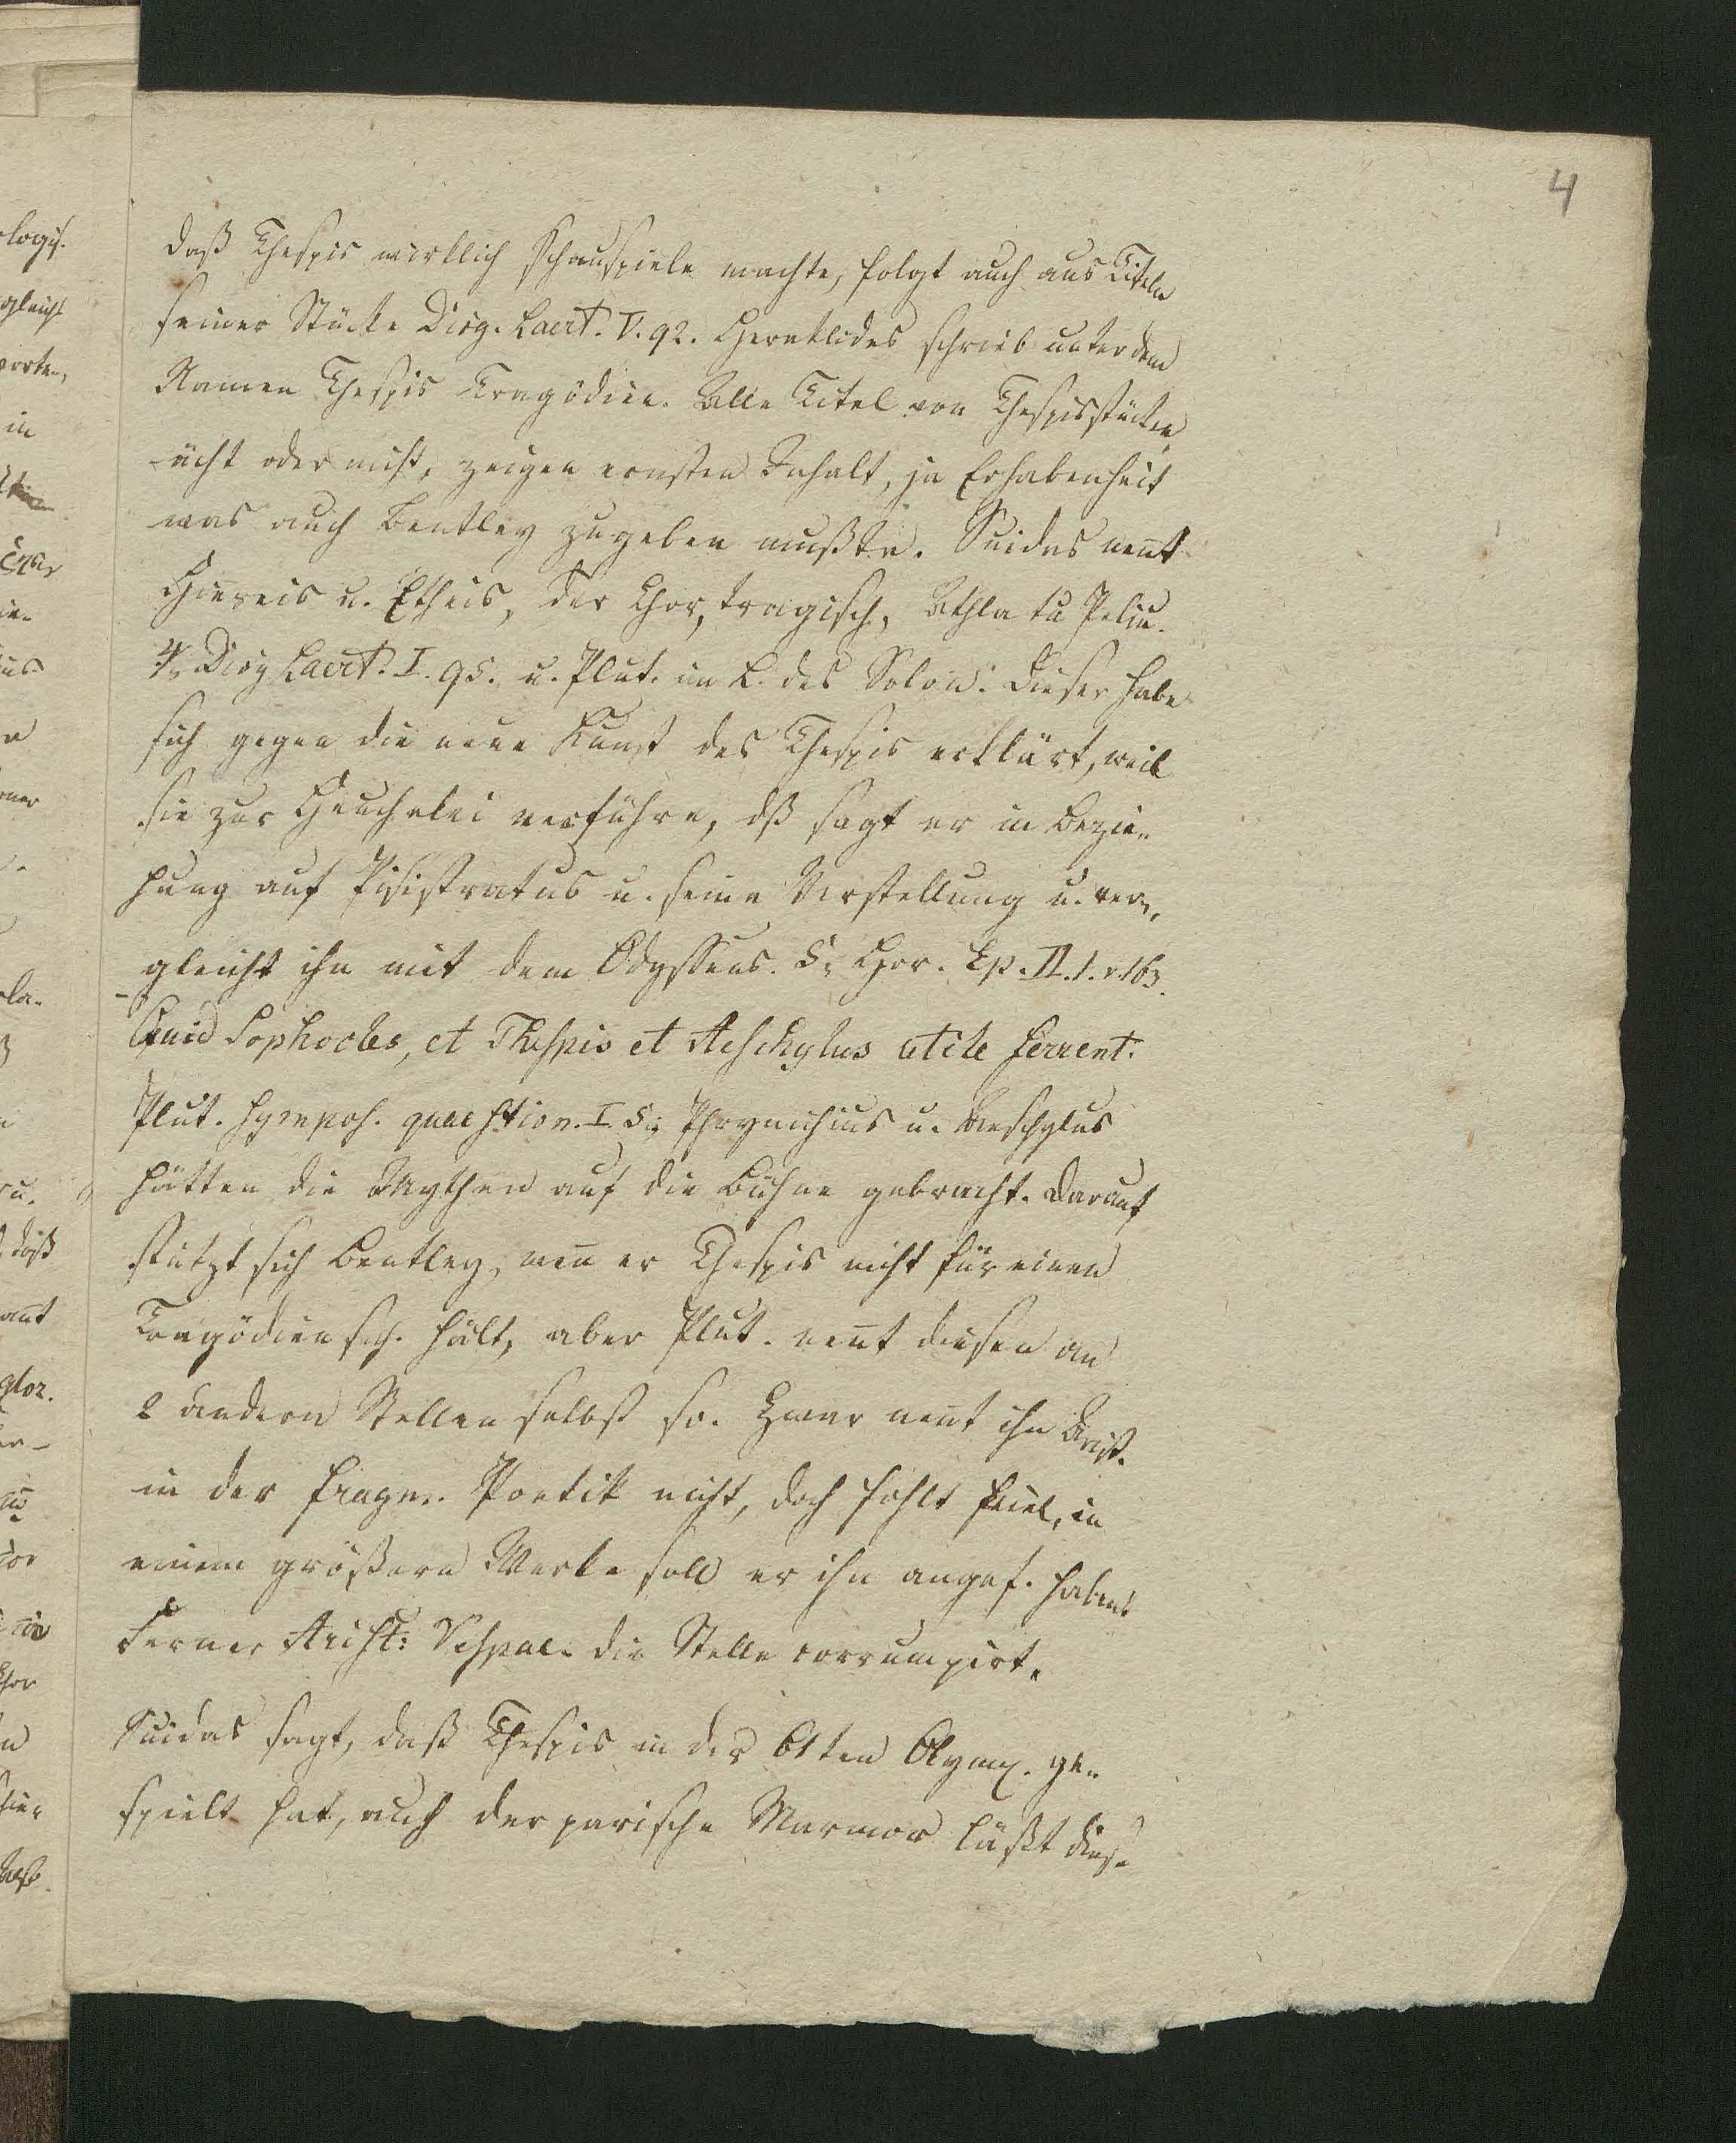 4
daß Thespis wirklich Schauspiele machte, folgt auch aus Titeln
seiner Stücke Diog. Laert. V. 92. Heraklides schrieb unter dem
Namen Thespis Tragödien. Alle Titel von Thespisstücken,
ächt oder nicht, zeigen ernsten Inhalt, ja Erhabenheit
was auch Bentley zugeben mußte. Suidas nen̄t
Hiereis u. Etheis, der Chor, tragisch, Athla tu Peliu.
4, Diog Laert. I. 95. u. Plut. im L. des Solon. Dieser habe
sich gegen die neue Kunst des Thespis erklärt, weil
sie zur Heuchelei verführe, dß sagt er in Bezie-
hung auf Pisistratus u. seine Verstellung u. ver-
gleicht ihn mit dem Odysseus. 5, Hor. Ep. II. 1. v. 163.
Quid Sophocles, et Thespis et Aeschylus utile ferrent.
Plut. Sympos. quaestion. I. 5; Phrynichius u. Aeschylus
hätten die Mythen auf die Bühne gebracht. Darauf
stützt sich Bentley, wen̄ er Thespis nicht für einen
Tragödiensch. hält, aber Plut. nen̄t diesen an
2 andern Stellen selbst so. Zwar nen̄t ihn Arist.
in der fragm. Poetik nicht, doch fehlt hier, in
einem größern Werke soll er ihn angef. haben.
Ferner Arist: Vespae. die Stelle corrumpirt.
Suidas sagt, daß Thespis in der 61ten Olymp. ge-
spielt hat, auch der parische Marmor läßt diese
logis.
gleicht
in
ius
cla-
daß